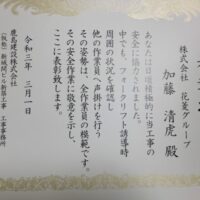 株式会社 花菱グループ
加藤 清虎 殿
あなたは日頃積極的に当工事の
安全に協力されました。
中でも、フォークリフト誘導時
周囲の状況を確認し
他の作業員へ声掛けを行う
その姿勢は、全作業員の模範です。
その安全作業に敬意を示し、
ここに表彰致します。
令和三年 三月一日
鹿島建設株式会社
(仮称)新城岡ビル新築工事 工事事務所